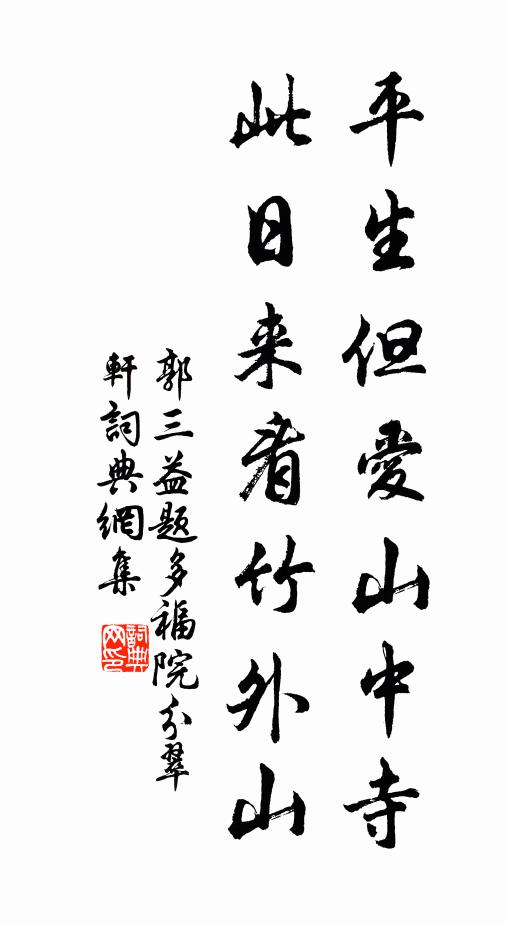 平生但愛山中寺
此日来看竹外山
郭三益题多福院分翠
軒詞典網集
詞典网印